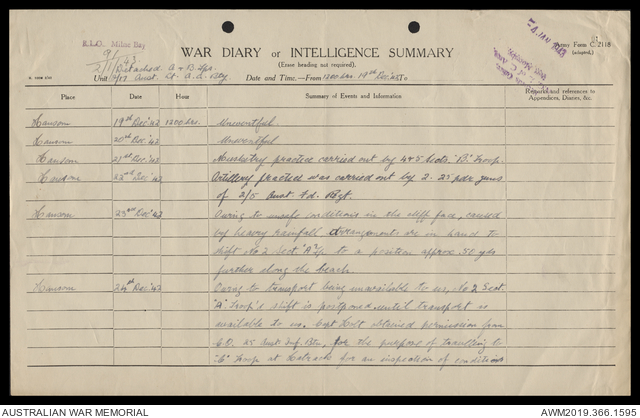 R.L.O. Milne Bay
WAR DIARY or INTELLIGENCE SUMMARY
Army Form C. 2118
(adapted.)
(Erase heading not required).
9/1/43
Detached A & B Tps.
Unit 2/ Aust. Lt. A.A. Bty. Date and Time.—From 1200 hrs 19th Dec '42 To
4 JAN 1943
Place Date Hour Summary of Events and Information Remarks and references to Appendices, Diaries, &c.
19th Dec '42 1200 hrs. Uneventful.
20th Dec '42 Uneventful
21st Dec '42 Musketry practice carried out by 4 & 5 Sects. "B" Troop.
22nd Dec '42 Artillery practice was carried out by 2. 25 pdr guns
of 2/5 Aust Fd. Regt.
23rd Dec '42 Owing to unsafe conditions in the cliff face, caused
by heavy rainfall arrangements are in hand to
shift No 2 Sect "A" Tp to a position approx. 50 yds
further along the beach.
24th Dec '42 Owing to transport being unavailable to us, No 2 Sect
"A" Troop's shift is postponed until transport is
available to us. Capt Holt obtained permission from
C.O. 25 Aust Inf. Btn, for the purpose of travelling to
"C" Troop at for an inspection of conditions
AUSTRALIAN WAR MEMORIAL
AWM2019.366.1595